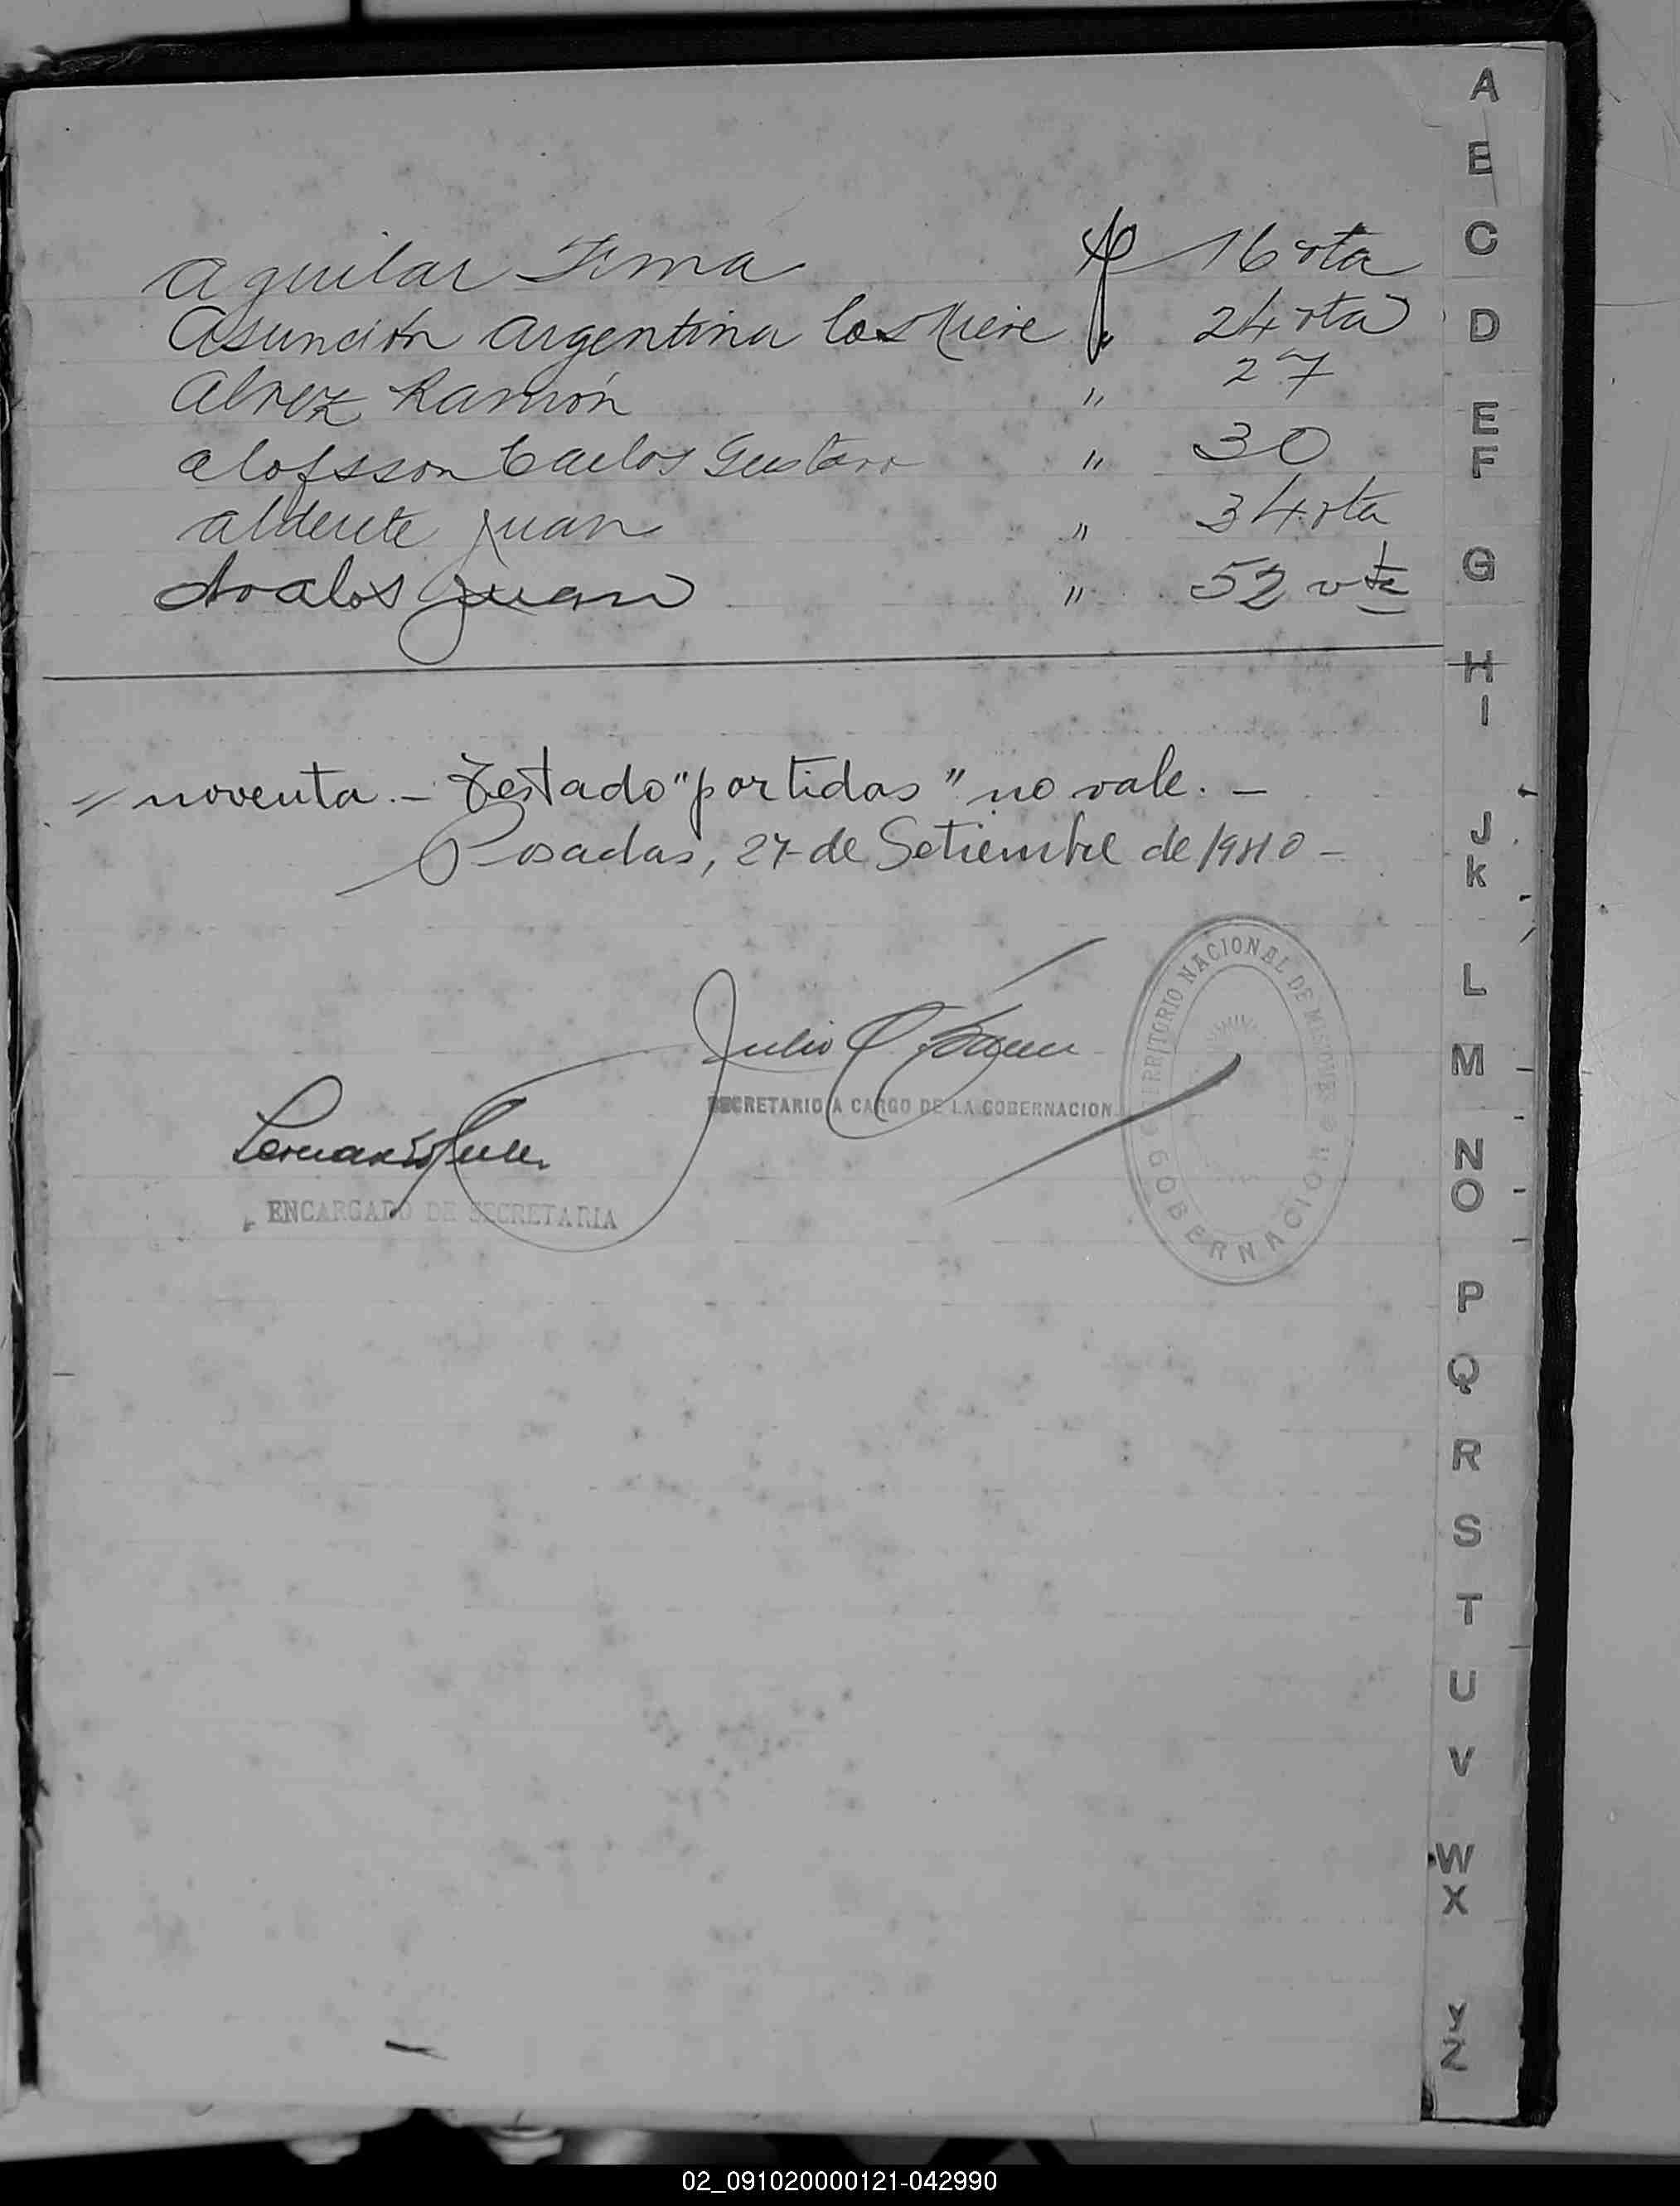 Aguilar Irma f° 16 vta
Asunción Argentina los " 24 vta
Alvez Ramón " 27
Alofsson Carlos Gustavo " 30
Alderete Juan " 34 vta
Avalos Juan " 52 vta
// noventa.- Testado "partidas" no vale.-
Posadas, 27 de Setiembre de 1940-
Julio
SECRETARIO A CARGO DE LA GOBERNACION
ENCARGADO DE SECRETARIA
TERRITORIO NACIONAL DE MISIONES
GOBERNACION
A
B
C
D
E
F
G
H
I
J
K
L
M
N
O
P
Q
R
S
T
U
V
W
X
Y
Z
02_091020000121-042990